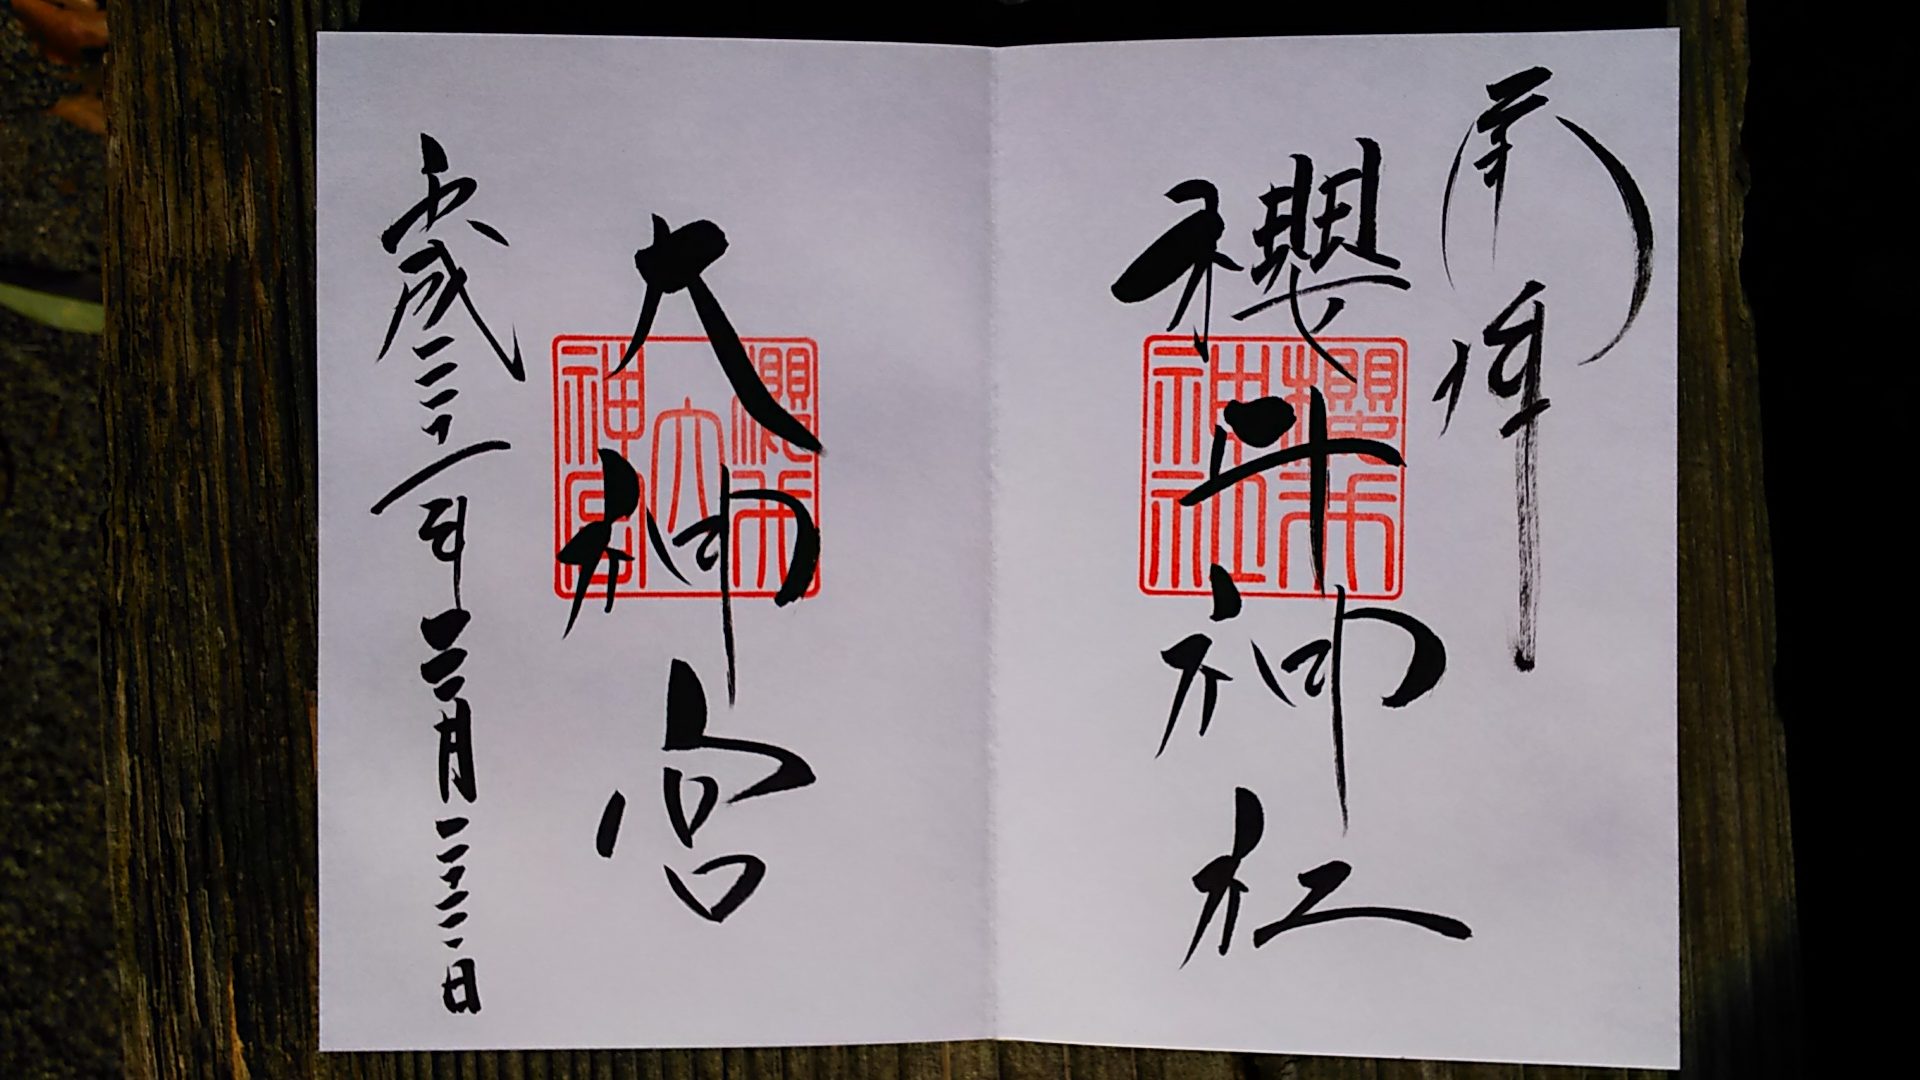 奉拝
櫻井神社
櫻井神社
大神宮
櫻井大神宮
平成 年三月 日